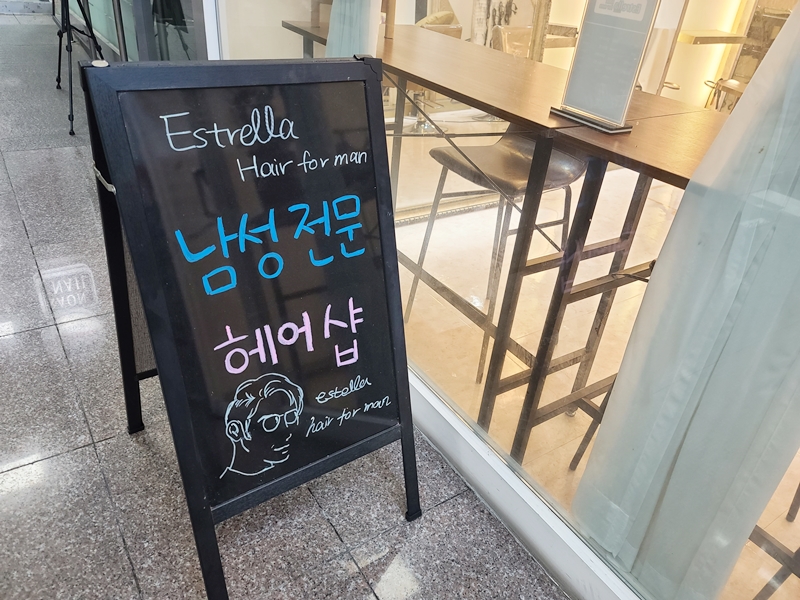 Estrella
Hair for man
남성 전문
헤어 샵
estella
hair for man